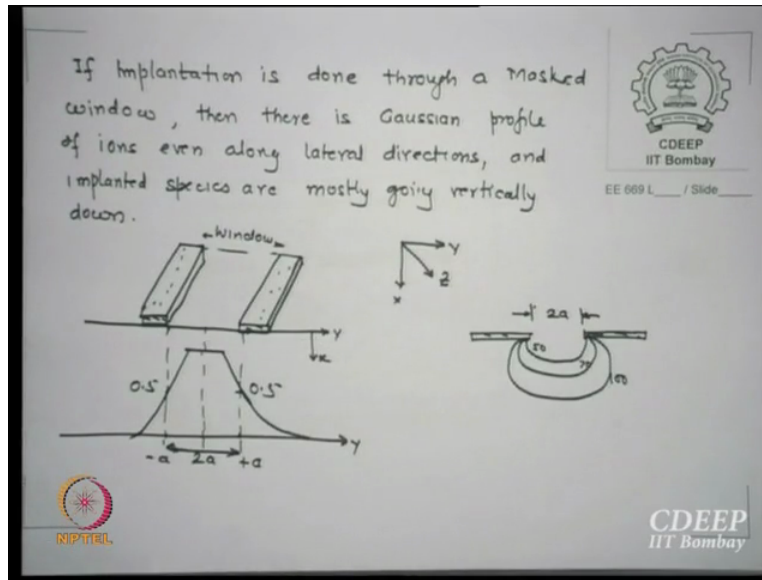 If Implantation is done through a Masked
window, then there is Gaussian profile
of ions even along lateral directions, and
implanted species are mostly going vertically
down.
CDEEP
IIT Bombay
EE 669 L____ / Slide____
Window
Y
x
Y
Z
x
0.5
0.5
Y
-a
2a
+a
2a
50
100
NPTEL
CDEEP
IIT Bombay